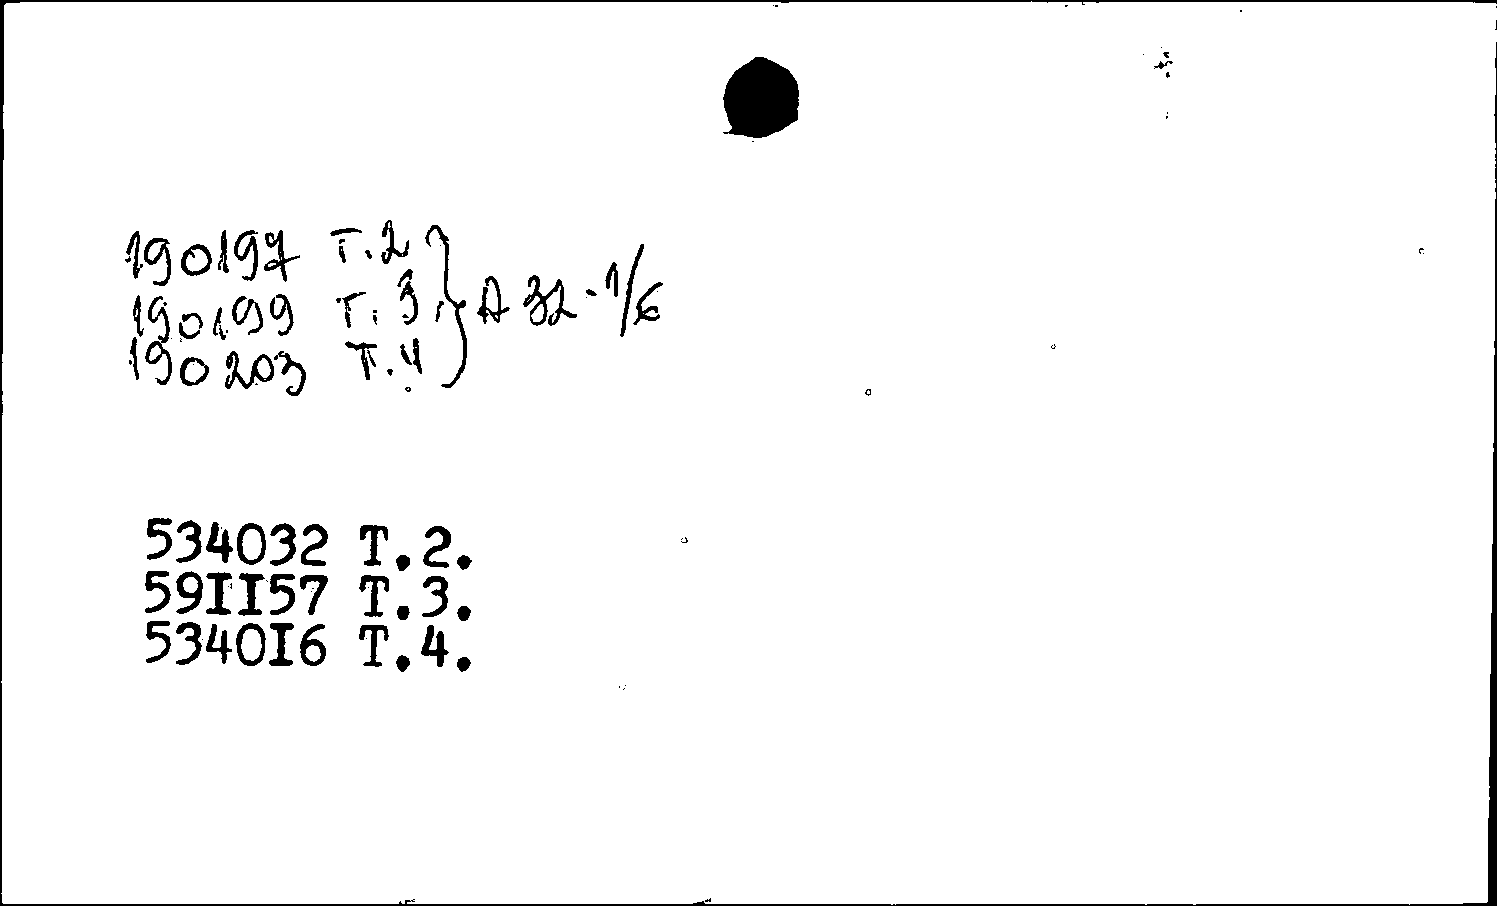 190197 Т.2
190199 Т.3 } А 32-1/6
190203 Т.4
534032 Т.2.
59II57 Т.3.
5340I6 Т.4.